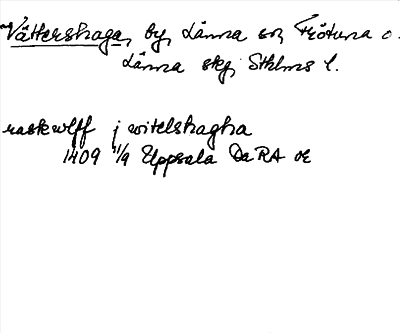 Vättershaga, by, Länna sn, Frötuna o.
Länna skg, Sthlms l.
raskwlff j witelshagha
1409 11/9 Uppsala DaRA or